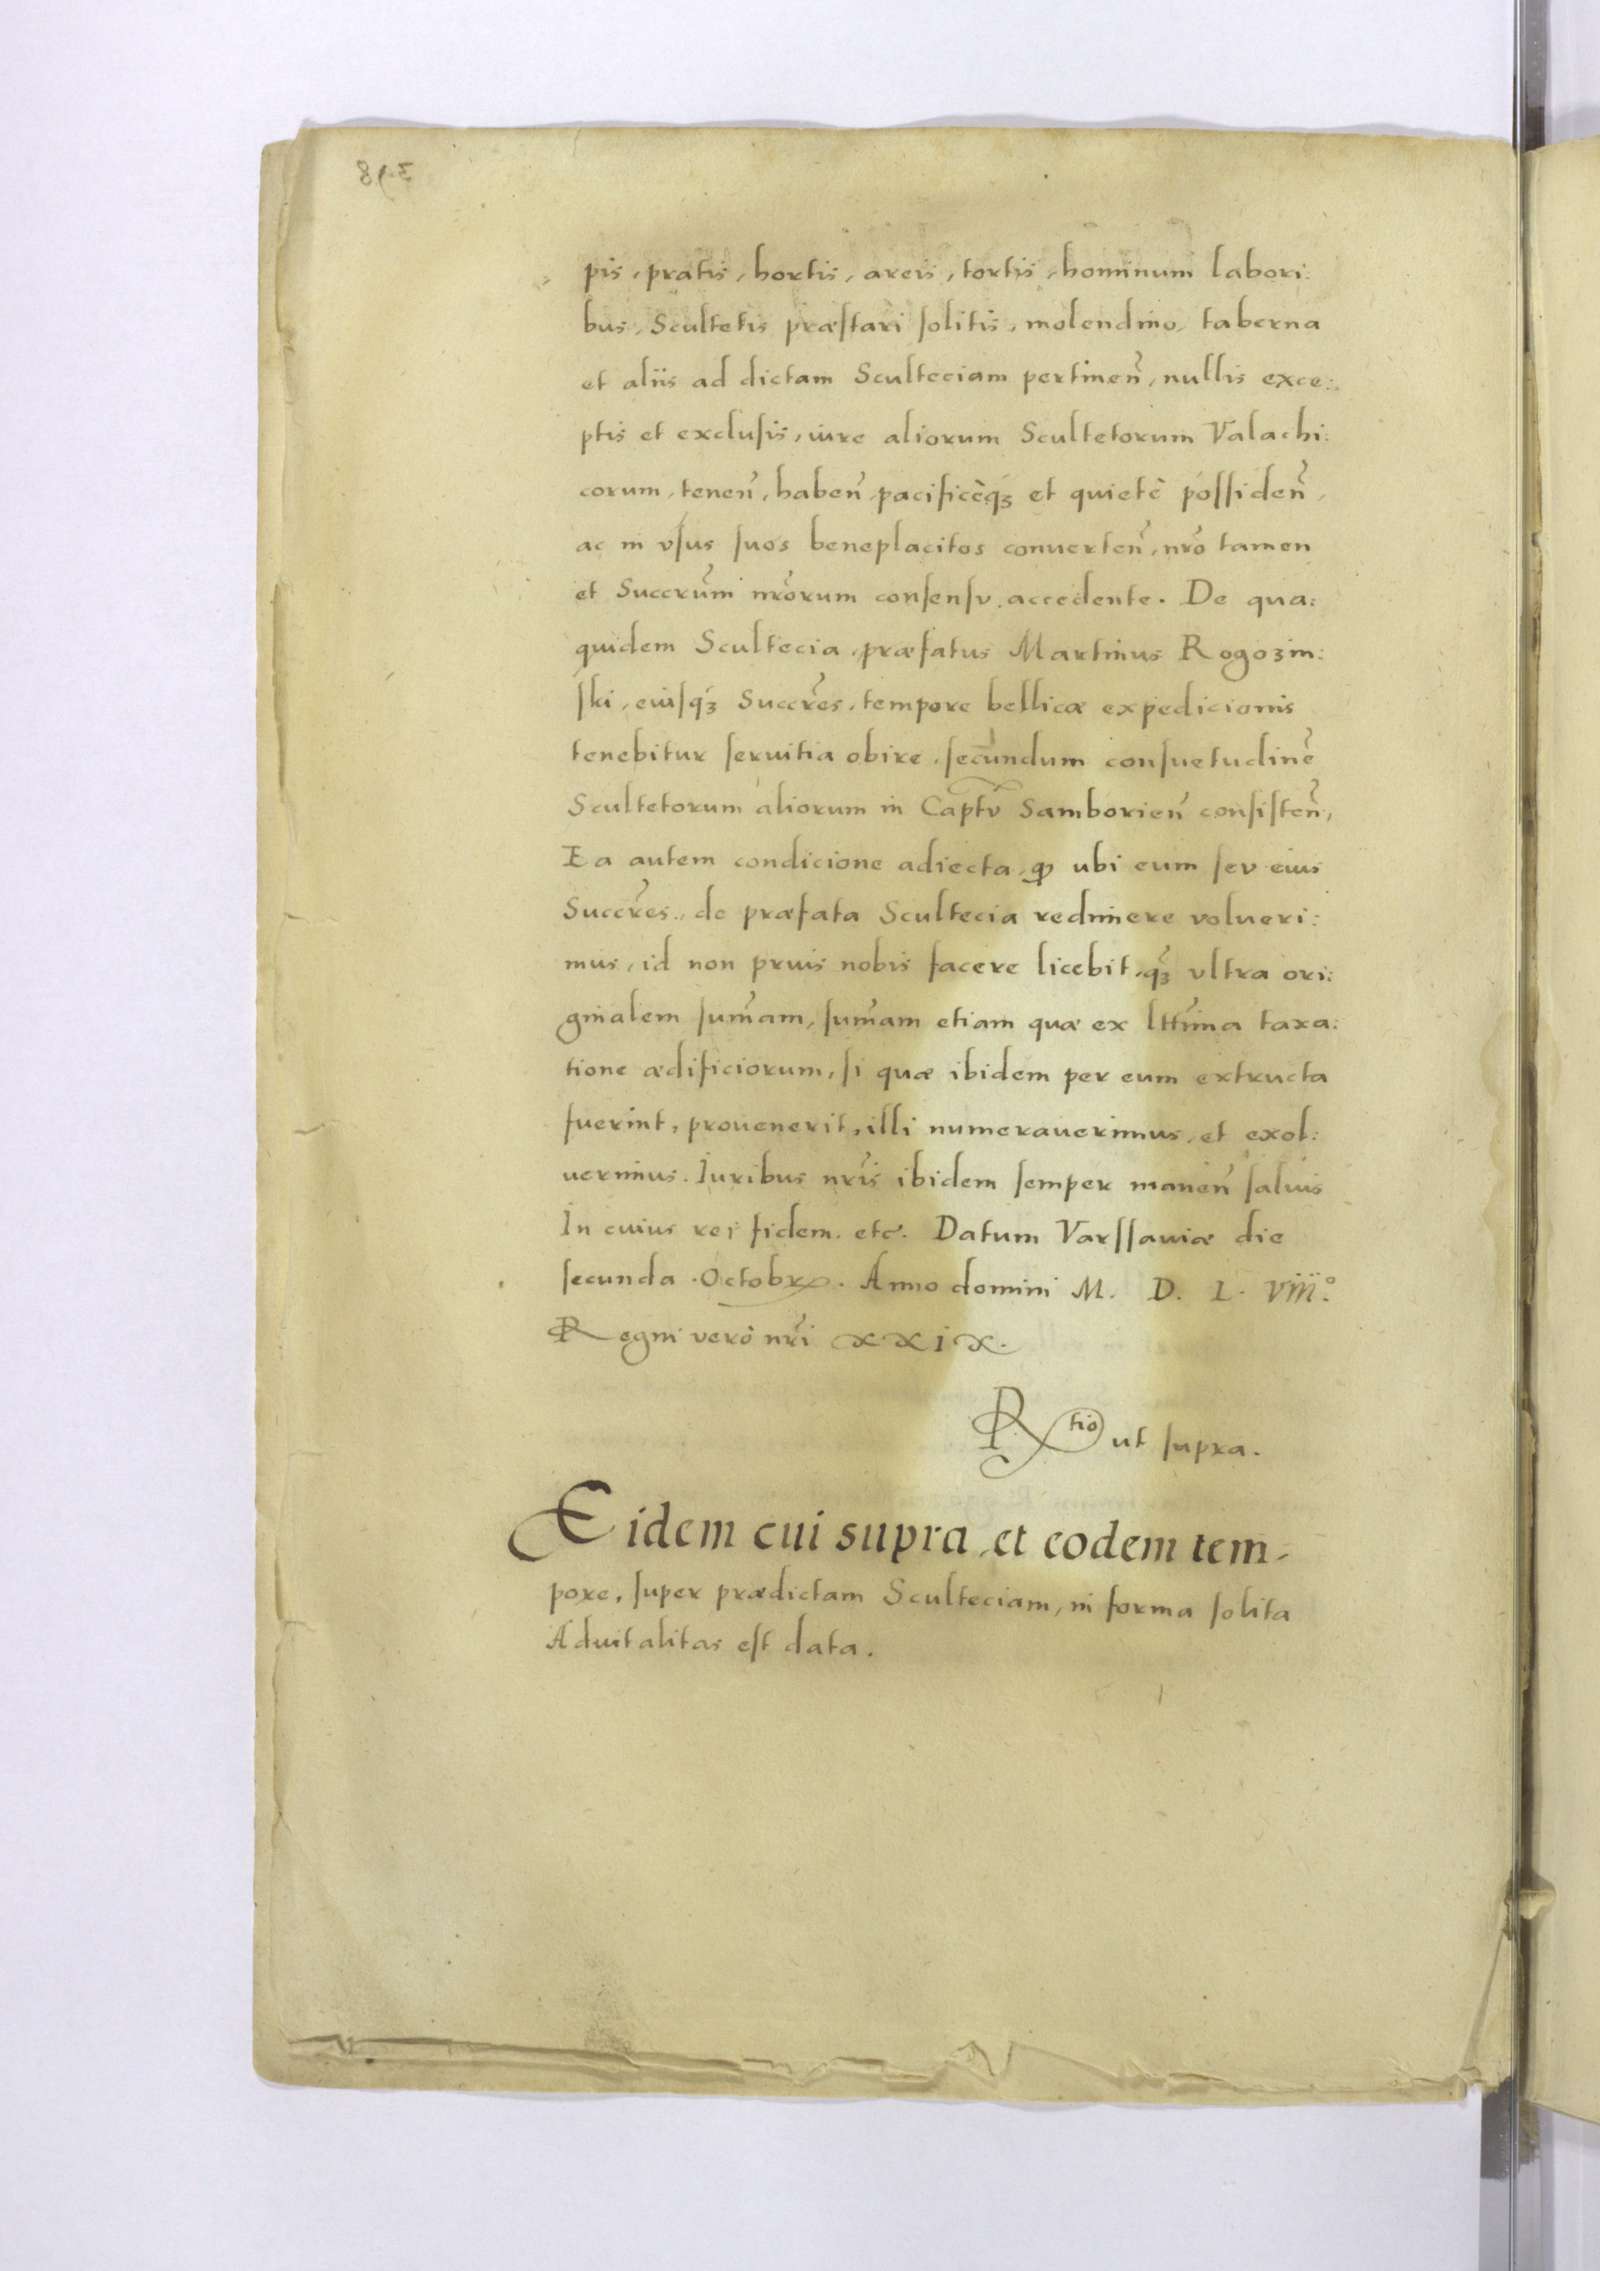 pis, pratis, hortis, areis, tortis, hominum labori:
bus, Scultetis præstari solitis, molendino, taberna
et aliis ad dictam Sculteciam pertinen̄, nullis exce:
ptis et exclusis, iure aliorum Scultetorum Valachi:
corum, tenen̄, haben̄, pacificèq₃ et quietè possiden̄,
ac in vsus suos beneplacitos conuerten̄, nr̄o tamen
et Succrūm nr̄orum consensv accedente. De qua:
quidem Scultecia, præfatus Martinus Rogozin:
ski, eiusq₃ Succr̄es, tempore bellicæ expedicionis
tenebitur seruitia obire, secundum consuetudinē
Scultetorum aliorum in Captv̄ Samborien̄ consisten̄,
Ea autem condicione adiecta, ꝙ ubi eum sev eius
Succr̄es, de præfata Scultecia redimere volueri:
mus, id non prius nobis facere licebit, q₃̄ vltra ori:
ginalem sum̄am, sum̄am etiam quæ ex ltt̄ima taxa:
tione ædificiorum, si quæ ibidem per eum extructa
fuerint, prouenerit, illi numerauerimus, et exol:
uerimus. Iuribus nr̄is ibidem semper manen̄ saluis
In cuius rei fidem. etc̄. Datum Varssauiæ die
secunda Octobr. Anno domini M. D. L. viii.°
Regni verò nr̄i xxix.
Rtio ut supra.
Eidem cui supra, et eodem tem-
pore, super prædictam Scultеciam, in forma solita
Aduitalitas est data.